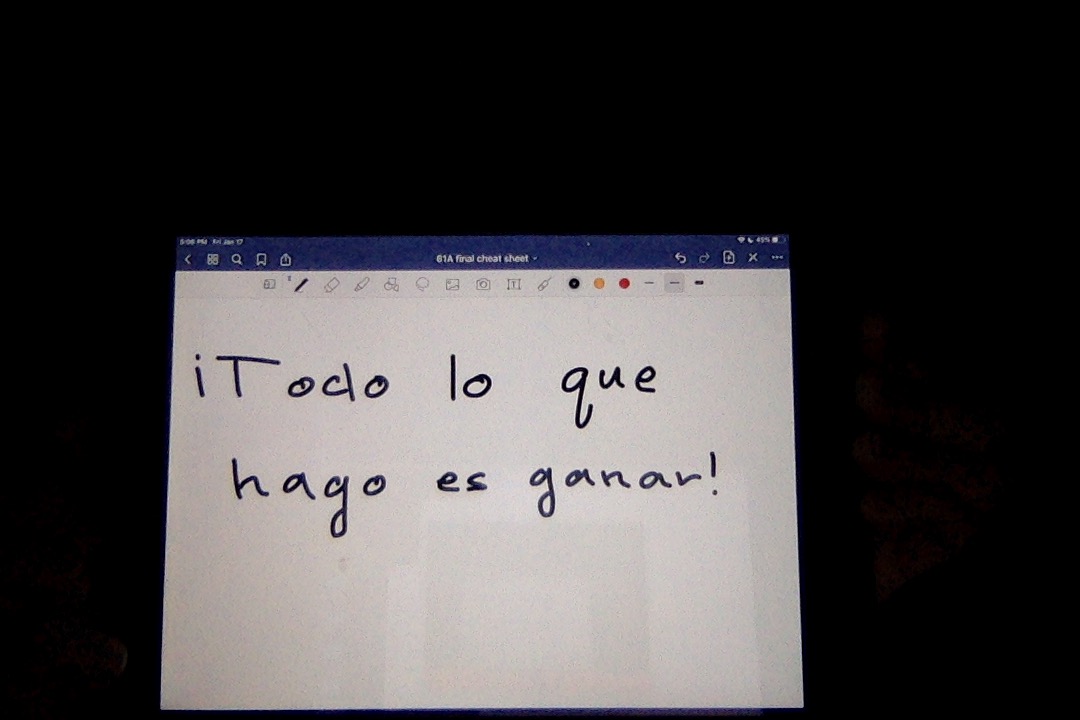 5:08 PM Fri Jan 17
45%
61A final cheat sheet
¡Todo lo que
hago es ganar!